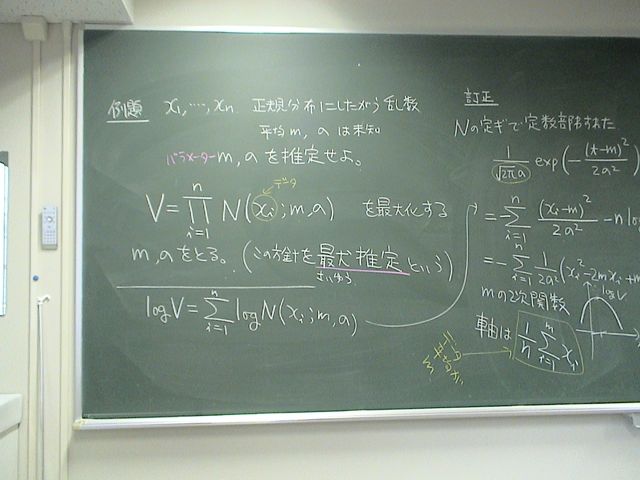 例題 x₁, …, xₙ 正規分布にしたがう乱数
平均 m, a は未知
パラメーター m, a を推定せよ。
データ
V = ∏ᵢ₌₁ⁿ N(xᵢ ; m, a) を最大化する
m, a をとる。(この方針を最尤推定という)
さいゆう
log V = ∑ᵢ₌₁ⁿ log N(xᵢ ; m, a)
訂正
Nの定ギで定数部ぬけてた
1/√2πa exp(−(t−m)²/2a²)
= −∑ᵢ₌₁ⁿ (xᵢ−m)²/2a² − n log
= −∑ᵢ₌₁ⁿ 1/2a² (xᵢ² − 2mxᵢ + m
mの2次関数
log V
軸は 1/n ∑ᵢ₌₁ⁿ xᵢ